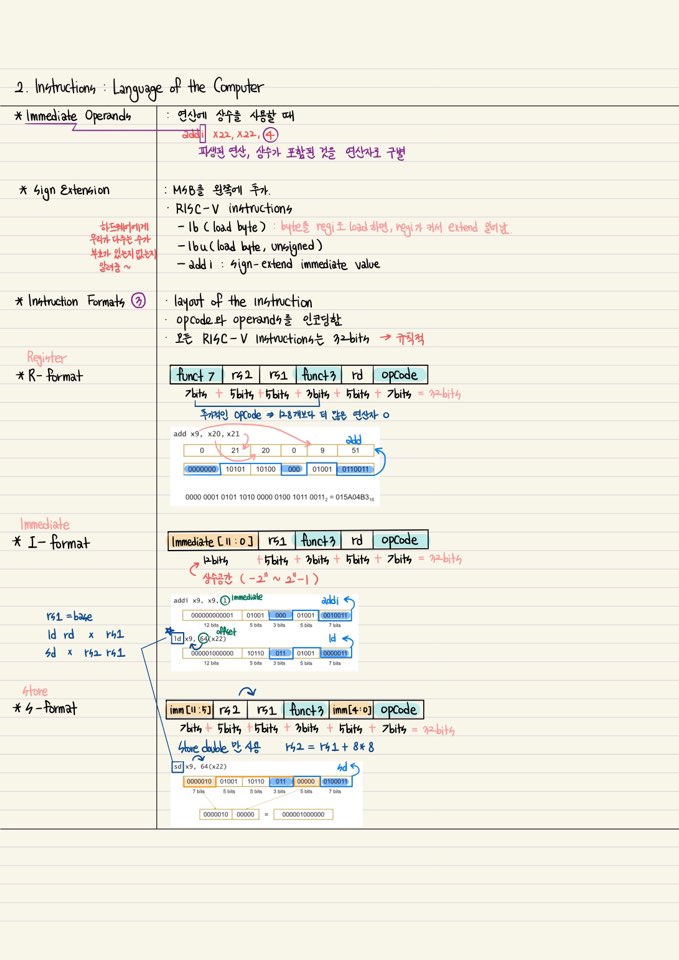 2. Instructions : Language of the Computer
* Immediate Operands
: 연산에 상수를 사용할 때
addi x22, x22, 4
파생된 연산, 상수가 포함된 것을 연산자로 구별
* Sign Extension
: MSB를 왼쪽에 추가.
· RISC-V instructions
- lb (load byte) : byte를 regi로 load하면, regi가 커서 extend 일어남
- lbu (load byte, unsigned)
- addi : sign-extend immediate value
하드웨어에게
우리가 다루는 수가
부호가 있는지 없는지
알려줌 ~
* Instruction Formats ③
· layout of the instruction
· opcode와 operands를 인코딩함
· 모든 RISC-V instructions는 32bits → 규칙적
Register
* R-format
funct7 rs2 rs1 funct3 rd opcode
7bits + 5bits + 5bits + 3bits + 5bits + 7bits = 32bits
추가적인 opcode ⇒ 128개보다 더 많은 연산자 o
add x9, x20, x21
add
0 21 20 0 9 51
0000000 10101 10100 000 01001 0110011
0000 0001 0101 1010 0000 0100 1011 0011₂ = 015A04B3₁₆
Immediate
* I-format
Immediate [11:0] rs1 funct3 rd opcode
12bits + 5bits + 3bits + 5bits + 7bits = 32bits
상수공간 (-2¹¹ ~ 2¹¹-1)
addi x9, x9, 1 immediate
addi
000000000001 01001 000 01001 0010011
12 bits 5 bits 3 bits 5 bits 7 bits
offset
ld x9, 64(x22)
ld
000001000000 10110 011 01001 0000011
12 bits 5 bits 3 bits 5 bits 7 bits
rs1 = base
ld rd x rs1
sd x rs2 rs1
Store
* S-format
imm[11:5] rs2 rs1 funct3 imm[4:0] opcode
7bits + 5bits + 5bits + 3bits + 5bits + 7bits = 32bits
Store double 만 사용 rs2 = rs1 + 8*8
sd x9, 64(x22)
sd
0000010 01001 10110 011 00000 0100011
7 bits 5 bits 5 bits 3 bits 5 bits 7 bits
0000010 00000 = 000001000000